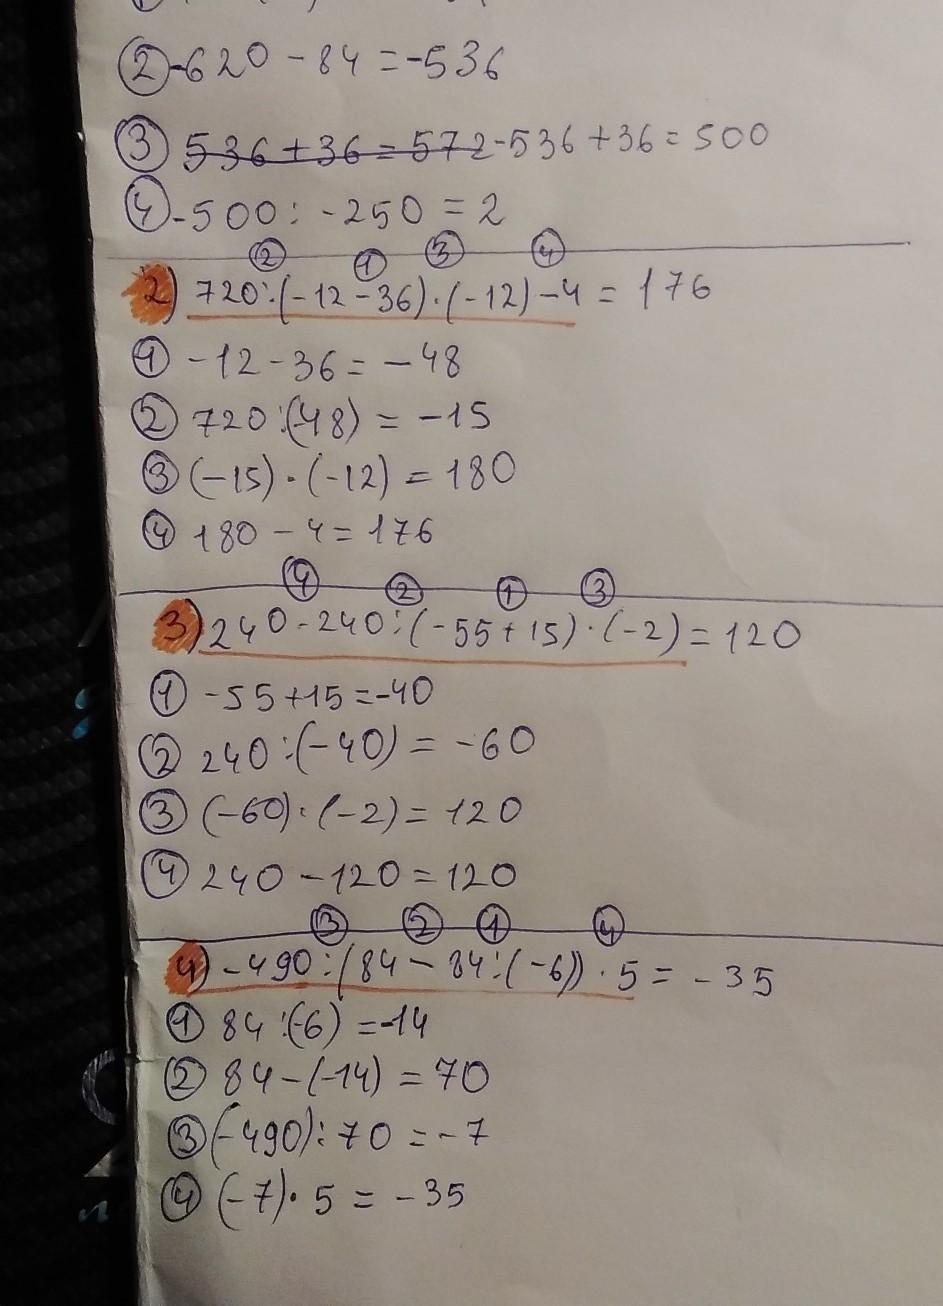 ② -620 - 84 = -536
③ 536 + 36 = 572 -536 + 36 = 500
④ -500 : -250 = 2
② ① ③ ④
2) 720:(-12-36)·(-12)-4 = 176
① -12-36 = -48
② 720:(-48) = -15
③ (-15)·(-12) = 180
④ 180 - 4 = 176
④ ② ① ③
3) 240-240:(-55+15)·(-2) = 120
① -55+15 = -40
② 240:(-40) = -60
③ (-60)·(-2) = 120
④ 240 - 120 = 120
③ ② ① ④
4) -490:(84-84:(-6))·5 = -35
① 84:(-6) = -14
② 84-(-14) = 70
③ (-490):70 = -7
④ (-7)·5 = -35